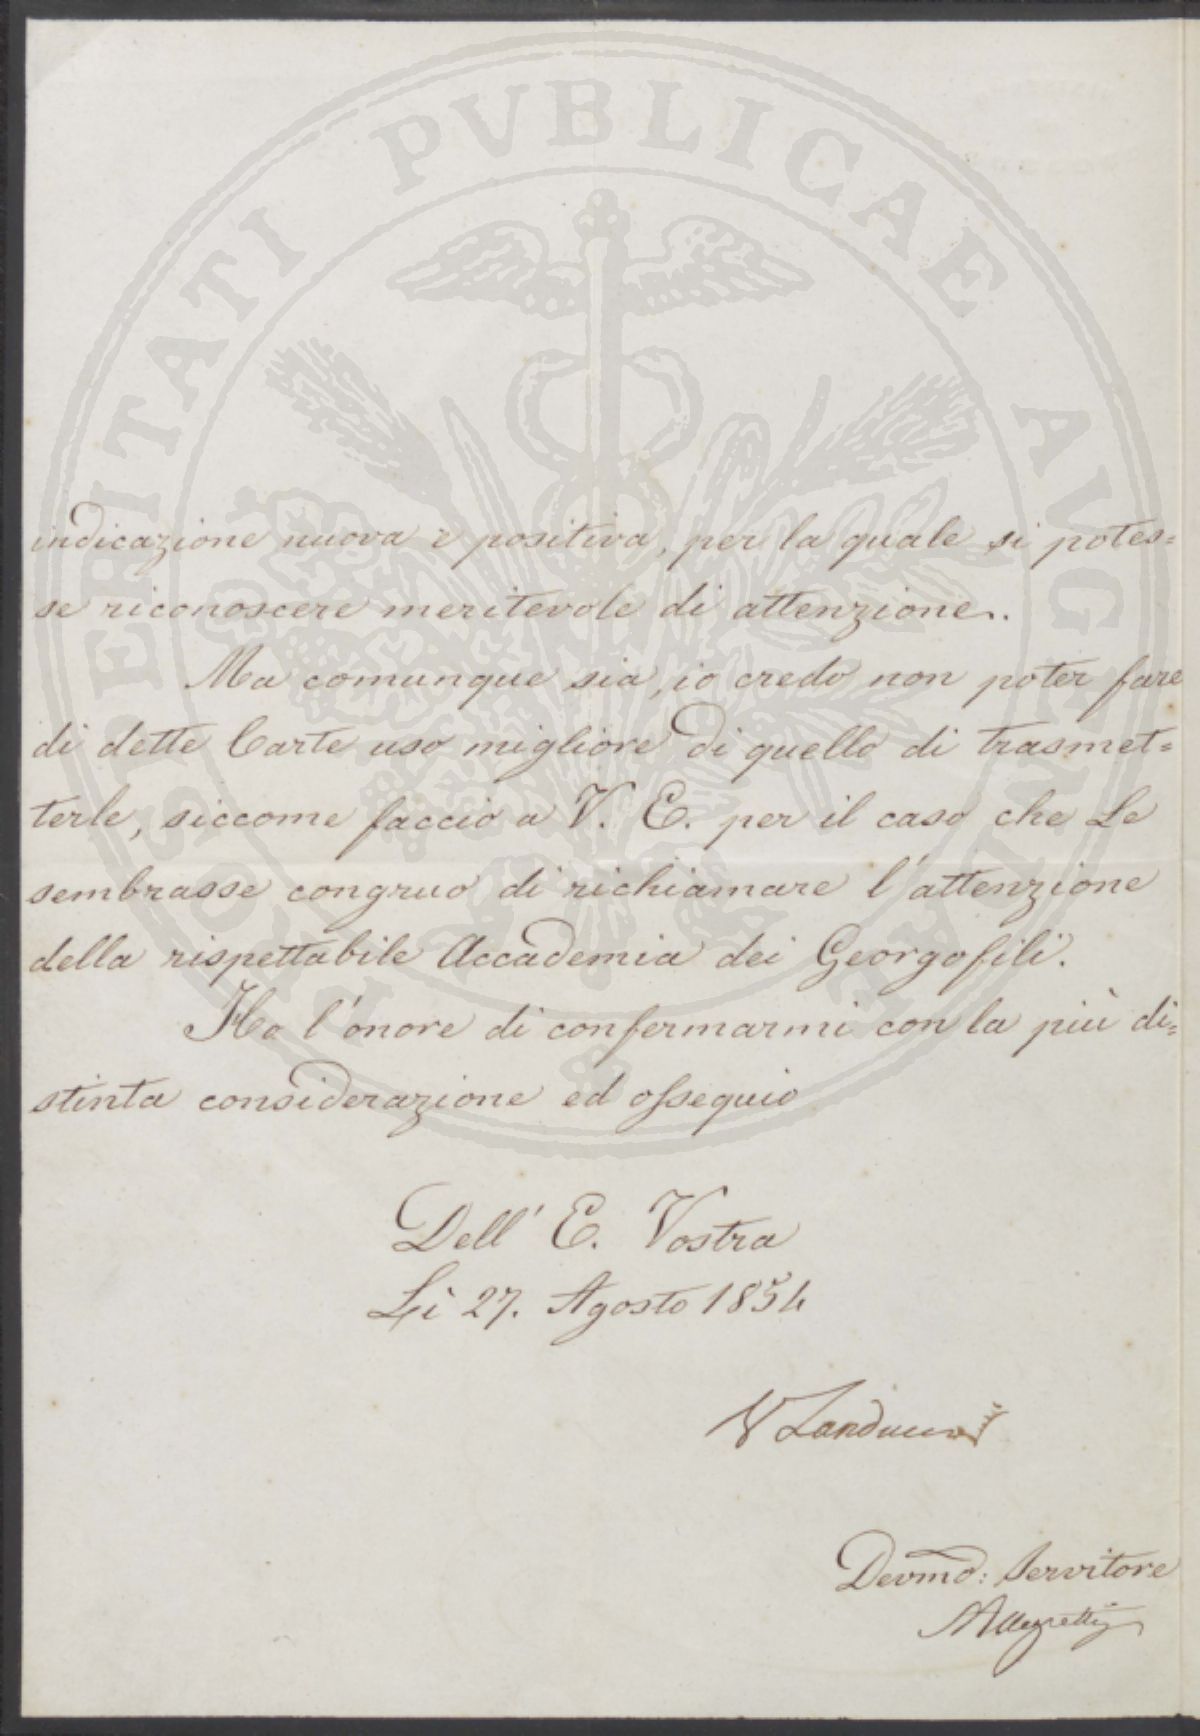 PROSPERITATI PUBLICAE AUGENDAE
indicazione nuova e positiva, per la quale si potes=
se riconoscere meritevole di attenzione.
Ma comunque sia, io credo non poter fare
di dette Carte uso migliore di quello di trasmet=
terle, siccome faccio a V. E. per il caso che Le
sembrasse congruo di richiamare l'attenzione
della rispettabile Accademia dei Georgofili.
Ho l'onore di confermarmi con la più di=
stinta considerazione ed ossequio
Dell' E. Vostra
Li 27. Agosto 1854
V Landucci
Devmo: Servitore
Allegretti